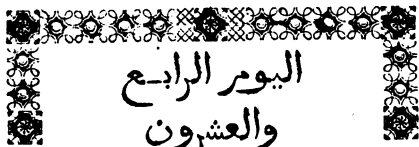 اليوم الرابع
والعشرون